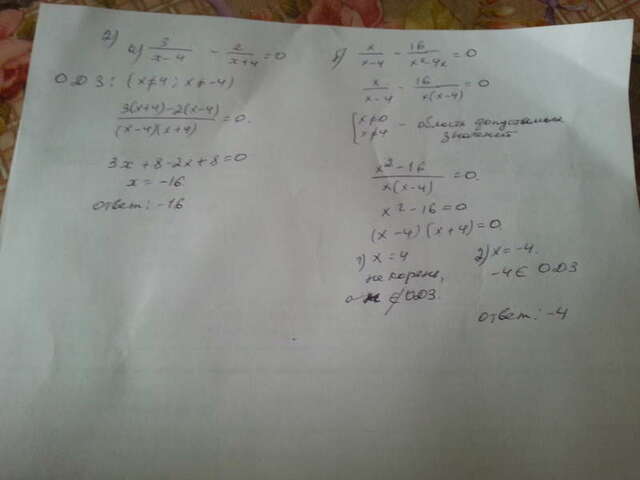 2)
а) 3/(x-4) - 2/(x+4) = 0
ОДЗ: (x≠4; x≠-4)
(3(x+4)-2(x-4))/((x-4)(x+4)) = 0.
3x+8-2x+8=0
x = -16
ответ: -16
б) x/(x-4) - 16/(x²-4x) = 0
x/(x-4) - 16/(x(x-4)) = 0
{x≠0
x≠4 - область допустимых
значений
(x²-16)/(x(x-4)) = 0.
x²-16=0
(x-4)(x+4)=0
1) x=4
не корень,
∉ ОДЗ.
2) x=-4.
-4 ∈ ОДЗ
ответ: -4